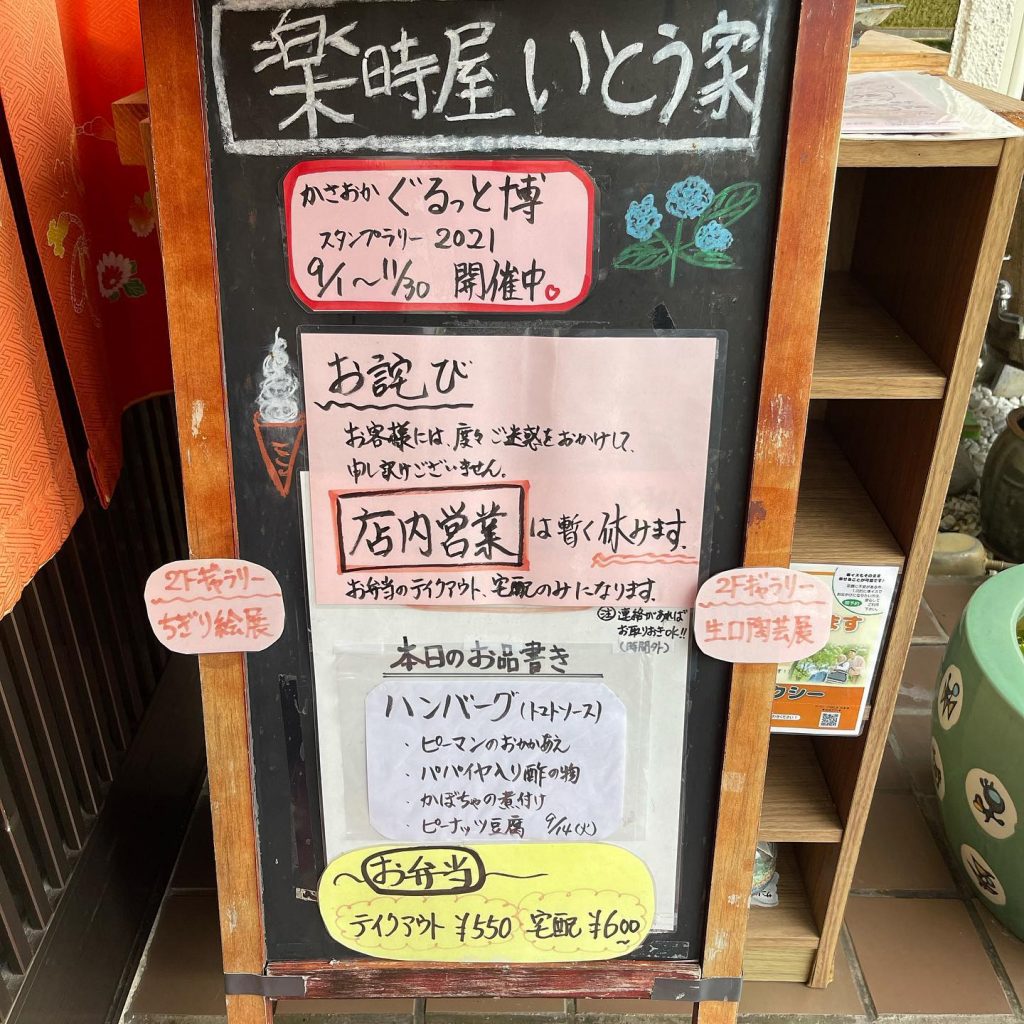 楽時屋 いとう家
かさおか ぐるっと博
スタンプラリー 2021
9/1〜11/30 開催中
お詫び
お客様には、度々ご迷惑をおかけして、
申し訳ございません。
店内営業は暫く休みます。
お弁当のテイクアウト、宅配のみになります。
注 連絡があれば
お取りおきOK!!
(時間外)
2Fギャラリー
ちぎり絵展
2Fギャラリー
生口陶芸展
本日のお品書き
ハンバーグ(トマトソース)
・ピーマンのおかかあえ
・パパイヤ入り酢の物
・かぼちゃの煮付け
・ピーナッツ豆腐 9/14(火)
お弁当
テイクアウト ¥550 宅配 ¥600
車イスもそのまま
乗せることが可能です!
ます
クシー